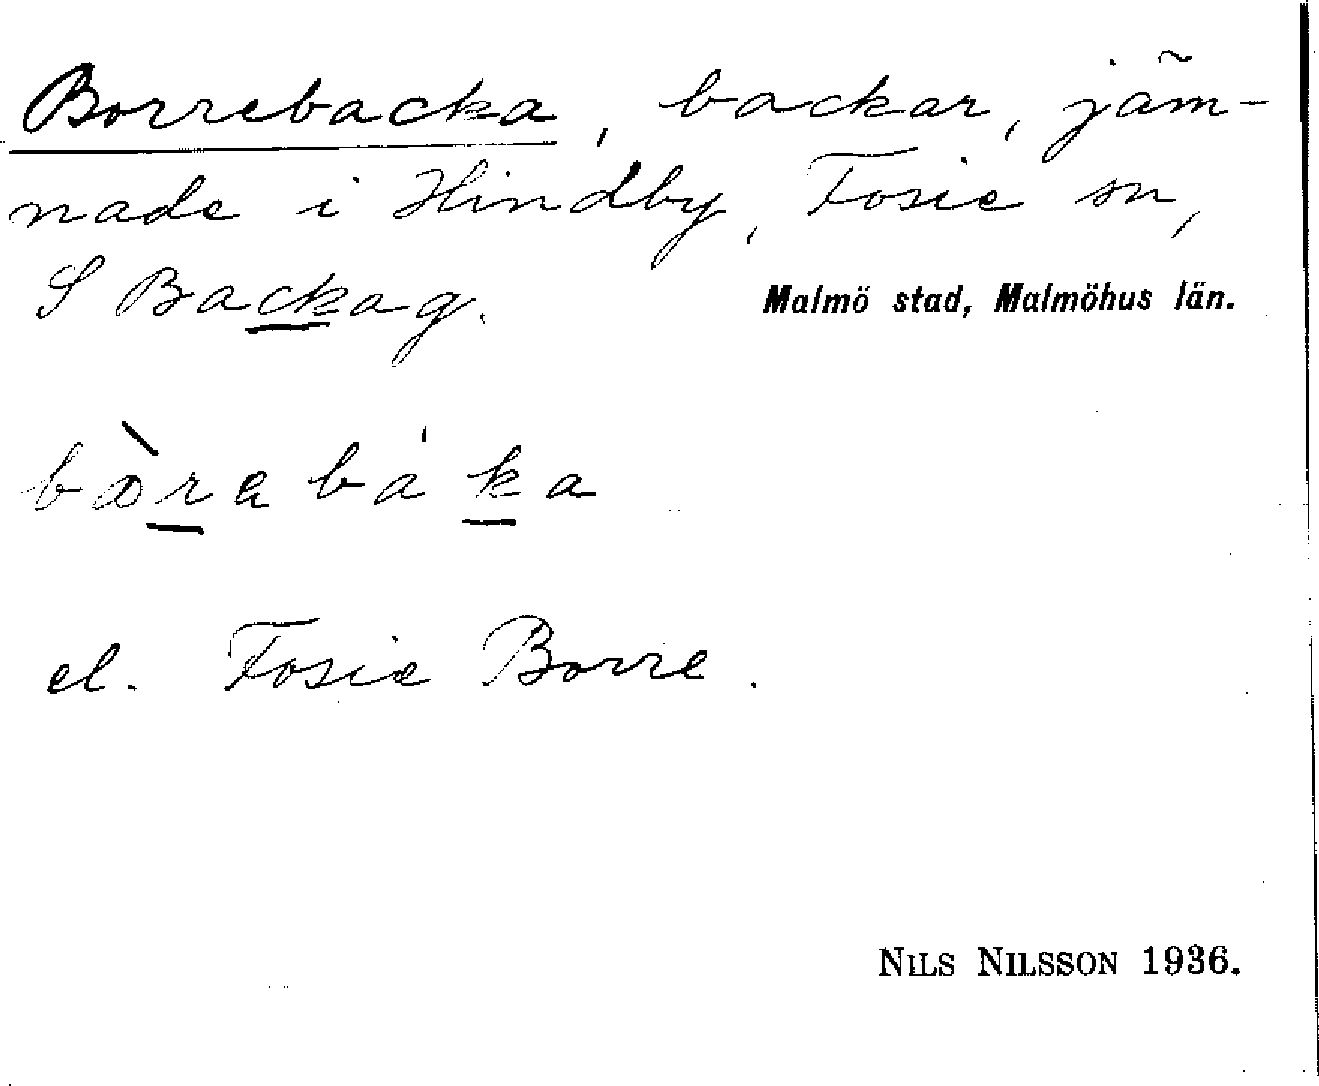 Borrebacka, backar, jäm-
nade i Hindby, Fosie sn,
S Backag. Malmö stad, Malmöhus län.
bòrabáka
el. Fosie Borre.
NILS NILSSON 1936.